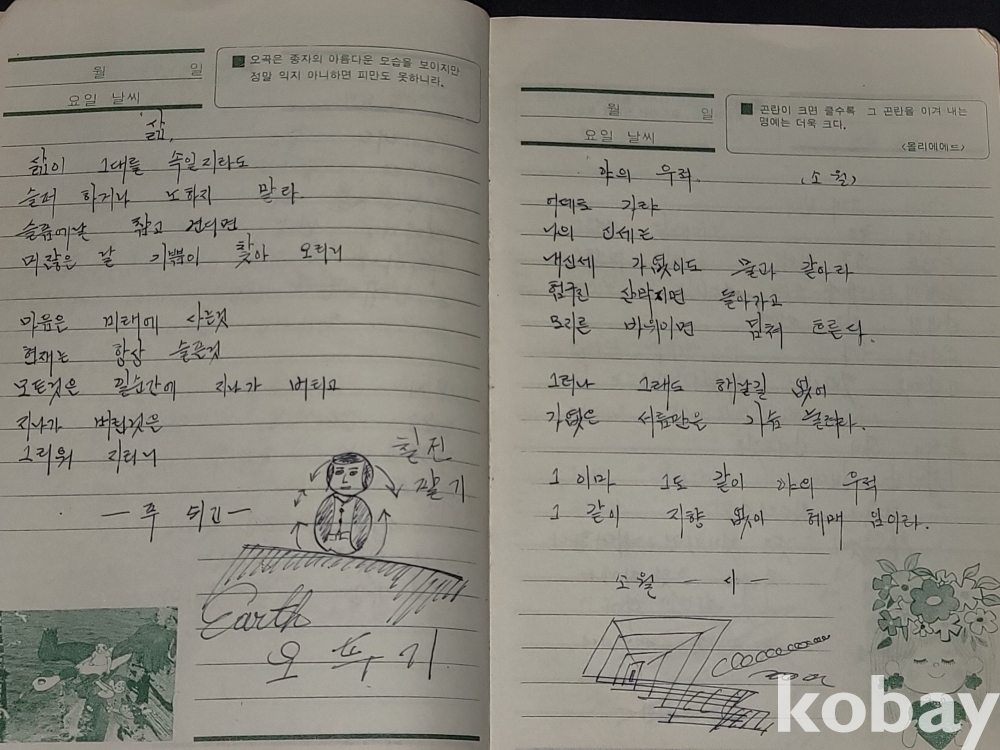 월 일
요일 날씨
오곡은 종자의 아름다운 모습을 보이지만
정말 익지 아니하면 피만도 못하니라.
삶.
삶이 그대를 속일지라도
슬퍼 하거나 노하지 말라.
슬픔에날 참고 견디면
머잖은 날 기쁨이 찾아 오리니
마음은 미래에 사는것
현재는 항상 슬픈것
모든것은 일순간에 지나가 버리고
지나가 버린것은
그리워 지리니
칠전
팔기
Earth
오뚜기
월 일
요일 날씨
곤란이 크면 클수록 그 곤란을 이겨 내는
명예는 더욱 크다.
<몰리에에드>
야의 우적. (소월)
어데로
나의 신세는
내신세 가엾이도 물과 같아라
험구진 산막지면 돌아가고
모지른 바위이면 넘쳐 흐른다.
그러나 그래도 헤날길 없어
가엾은 서름만은 가슴 눌러라.
그 이마 그도 같이 야의 우적
그 같이 지향 없이 헤매임이라.
소월 - 시 -
kobay